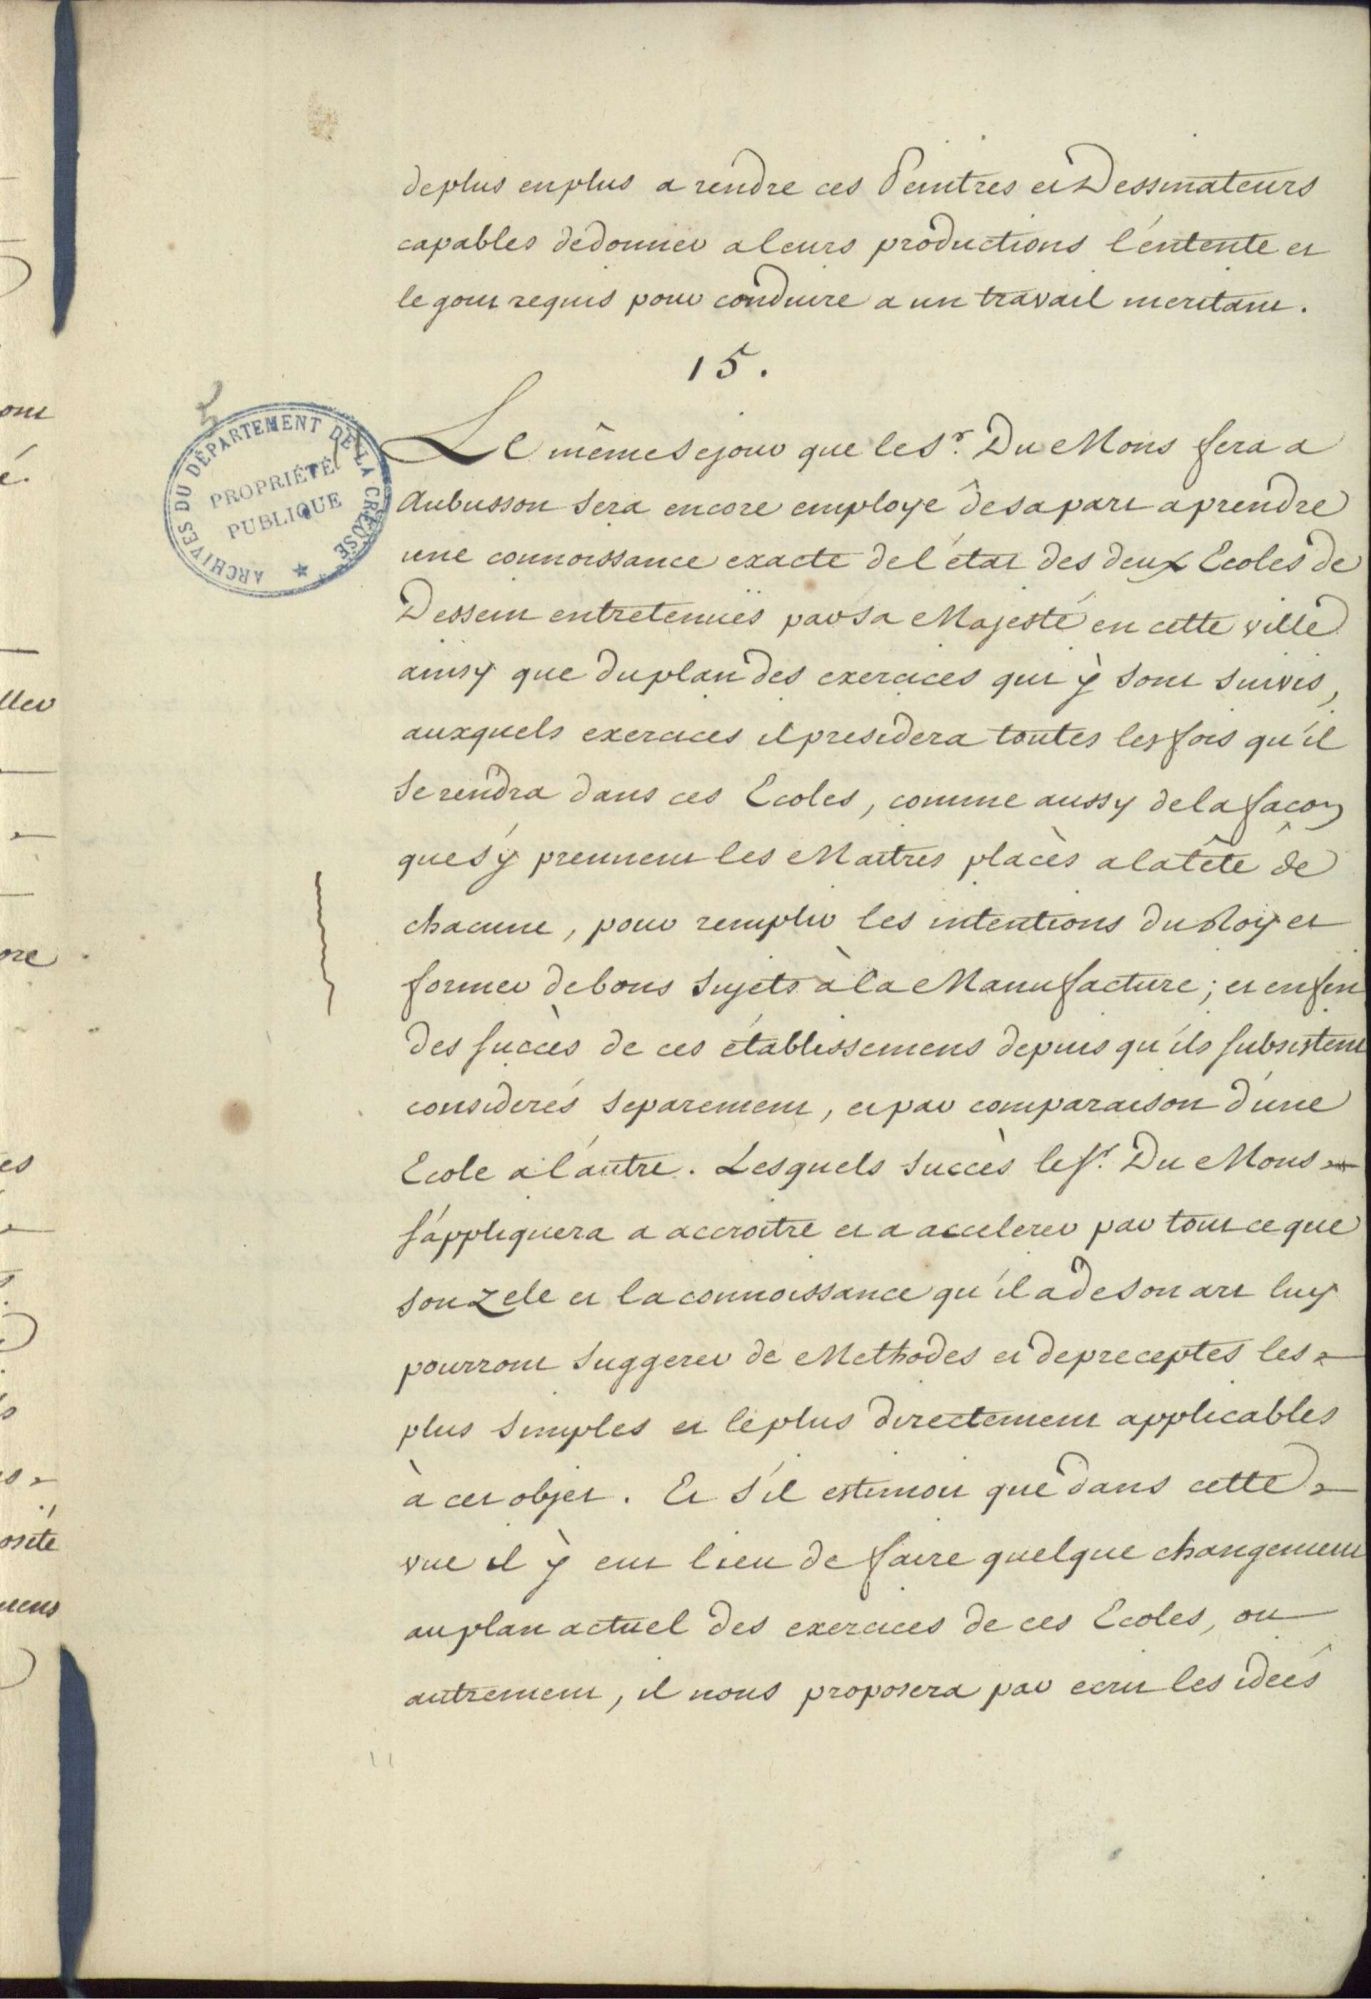 de plus en plus a rendre ces Peintres et Dessinateurs
capables de donner a leurs productions l'entente et
le gout requis pour conduire a un travail meritant.
15.
Le même Sejour que le Sr. Du Mons fera a
Aubusson sera encore employé de sa part a prendre
une connoissance exacte de l'état des deux Ecoles de
Dessein entretenuës par Sa Majesté en cette ville
ainsy que du plan des exercices qui ÿ sont suivis,
auxquels exercices il presidera toutes les fois qu'il
se rendra dans ces Ecoles, comme aussy de la façon
que s'ÿ prennent les Maitres placès a la tête de
chacune, pour remplir les intentions du Roy et
former de bons Sujets à la Manufacture; et enfin
des succès de ces établissemens depuis qu'ils subsistent
considerés separement, et par comparaison d'une
Ecole a l'autre. Lesquels succès le Sr. Du Mons
s'appliquera a accroitre et a accelerer par tout ce que
son zele et la connoissance qu'il a de son art luy
pourront suggerer de Methodes et de preceptes les
plus simples et le plus directement applicables
à cet objet. Et s'il estimoit que dans cette
vue il ÿ eut lieu de faire quelque changement
au plan actuel des exercices de ces Ecoles, ou
autrement, il nous proposera par ecrit les ideés
ARCHIVES DU DÉPARTEMENT DE LA CREUSE
PROPRIÉTÉ
PUBLIQUE
ont
é.
ller
ore
es
osité
mens